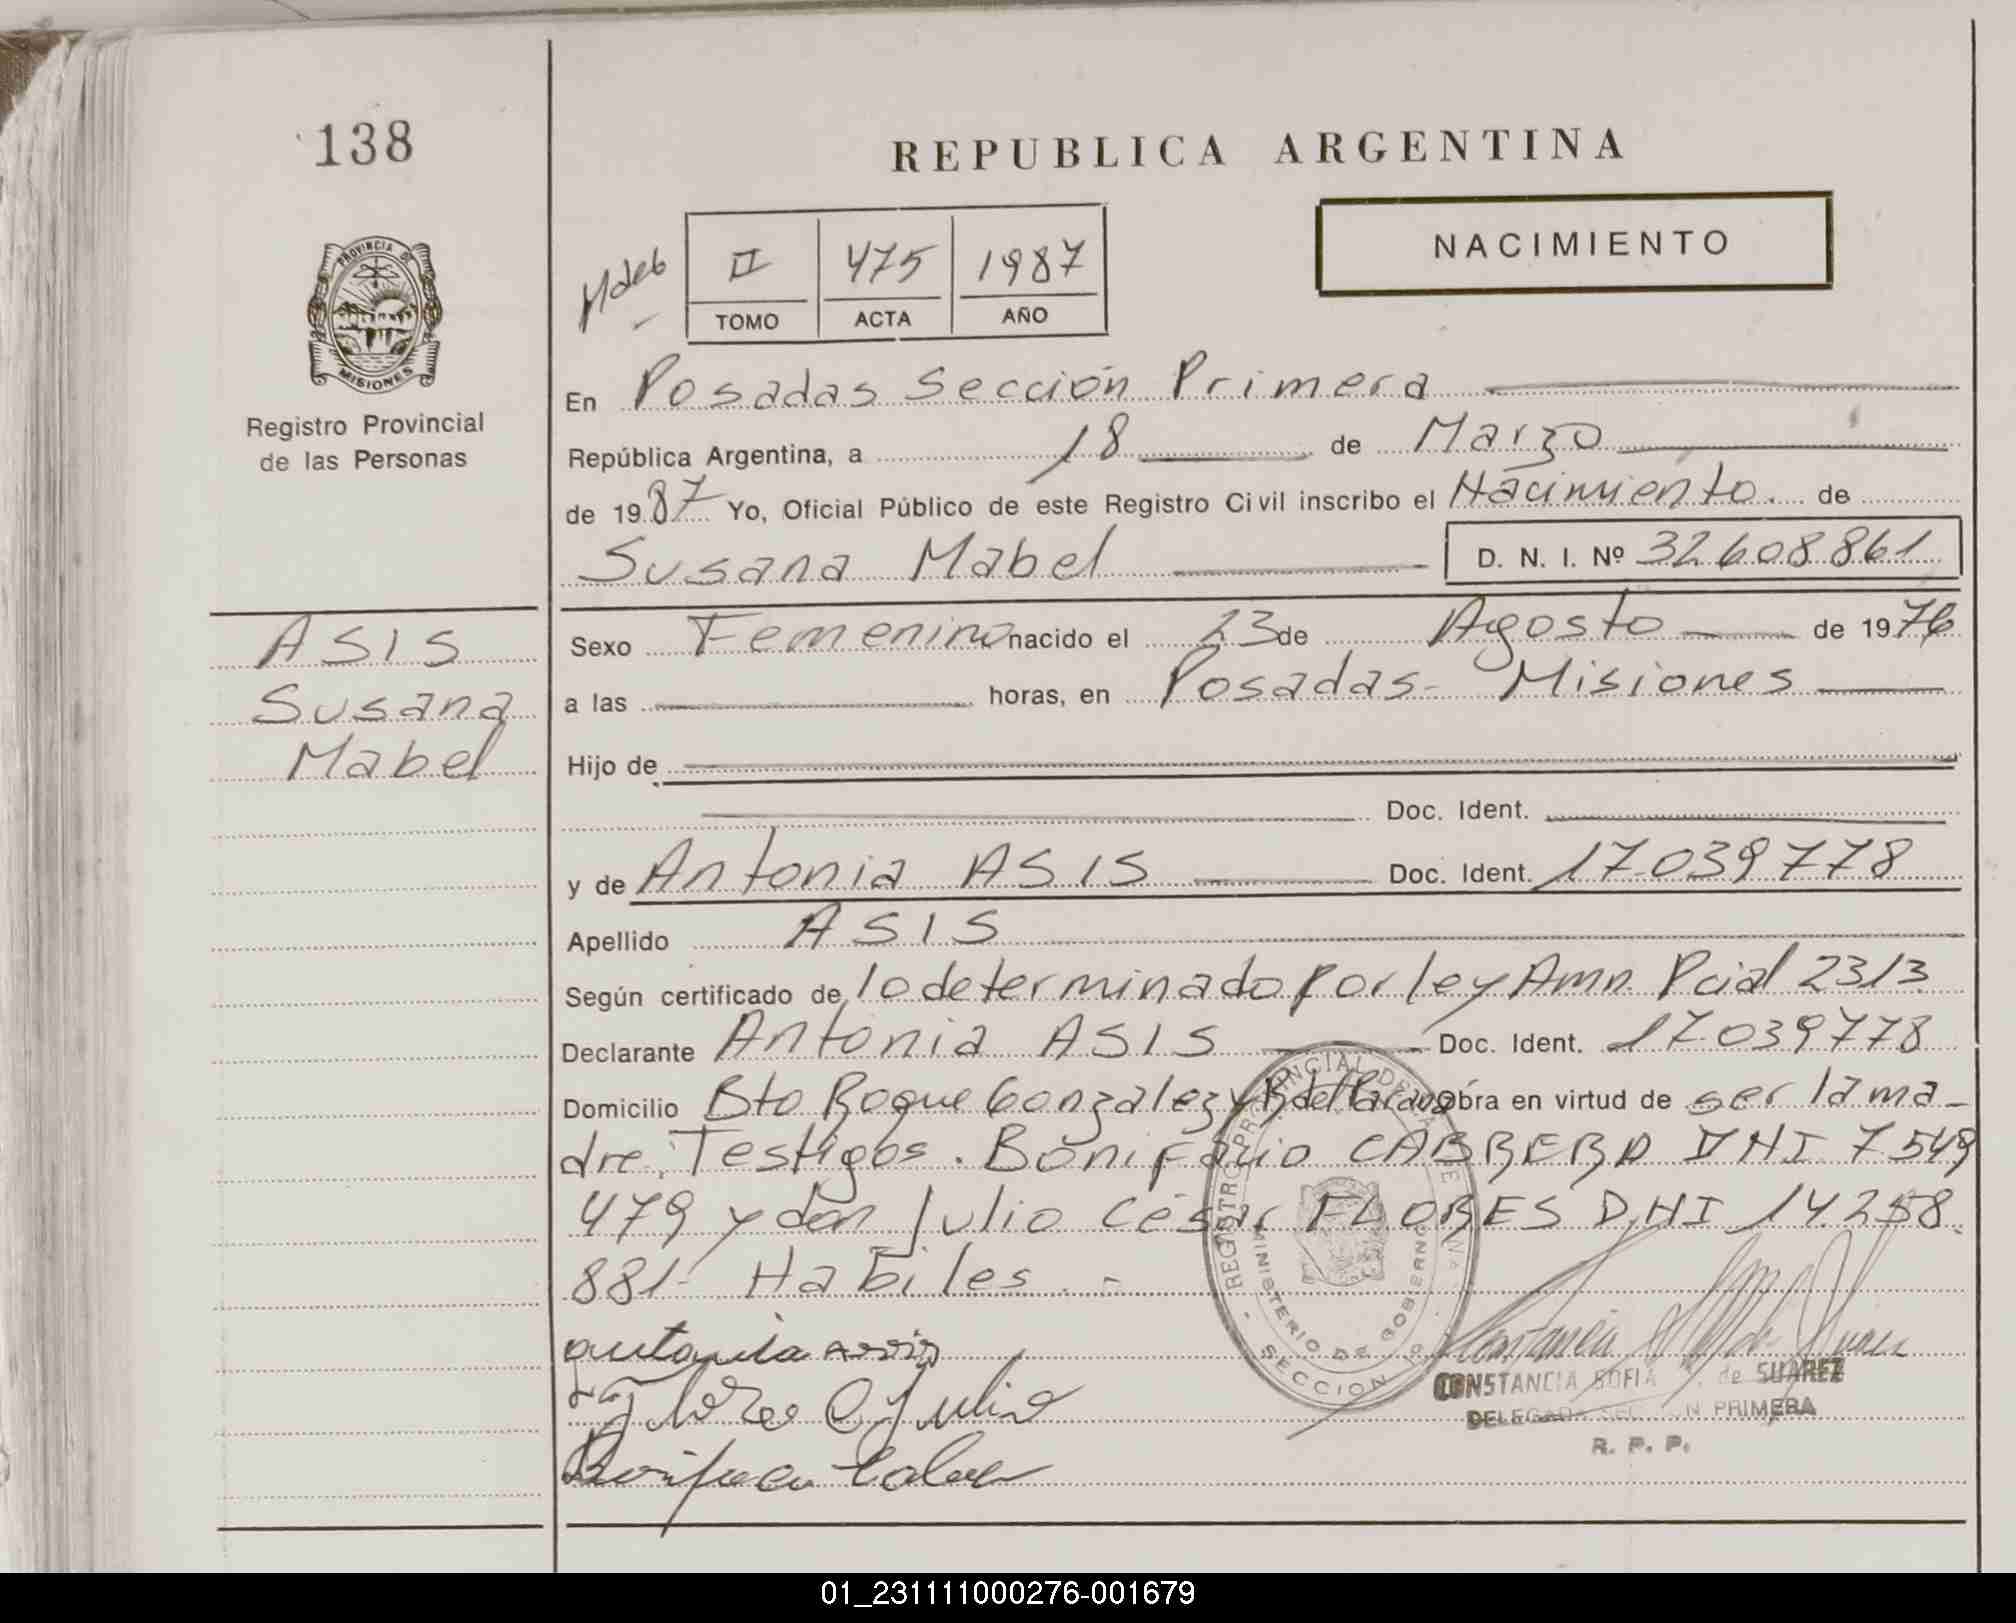 138
REPUBLICA ARGENTINA
NACIMIENTO
II 475 1987
TOMO ACTA AÑO
PROVINCIA DE
MISIONES
Registro Provincial
de las Personas
En Posadas Sección Primera
República Argentina, a 18 de Marzo
de 1987 Yo, Oficial Público de este Registro Civil inscribo el Nacimiento. de
Susana Mabel D. N. I. Nº 32.608.861
ASIS
Susana
Mabel
Sexo Femenino nacido el 23 de Agosto de 1976
a las horas, en Posadas - Misiones
Hijo de
Doc. Ident.
y de Antonia ASIS Doc. Ident. 17.039778
Apellido ASIS
Según certificado de lo determinado por ley Amn. Pcial 2313
Declarante Antonia ASIS Doc. Ident. 17.039778
Domicilio Bto Roque Gonzalez y R del Parana Obra en virtud de ser la ma-
dre. Testigos. Bonifacio CABRERA DNI 7.549
479 y don Julio César FLORES DNI 14.258.
881- Habiles. -
REGISTRO PROVINCIAL DE LAS PERSONAS
MINISTERIO DE GOBIERNO
- SECCION 1º -
CONSTANCIA SOFIA de SUAREZ
DELEGADA SECCION PRIMERA
R. P. P.
01_231111000276-001679